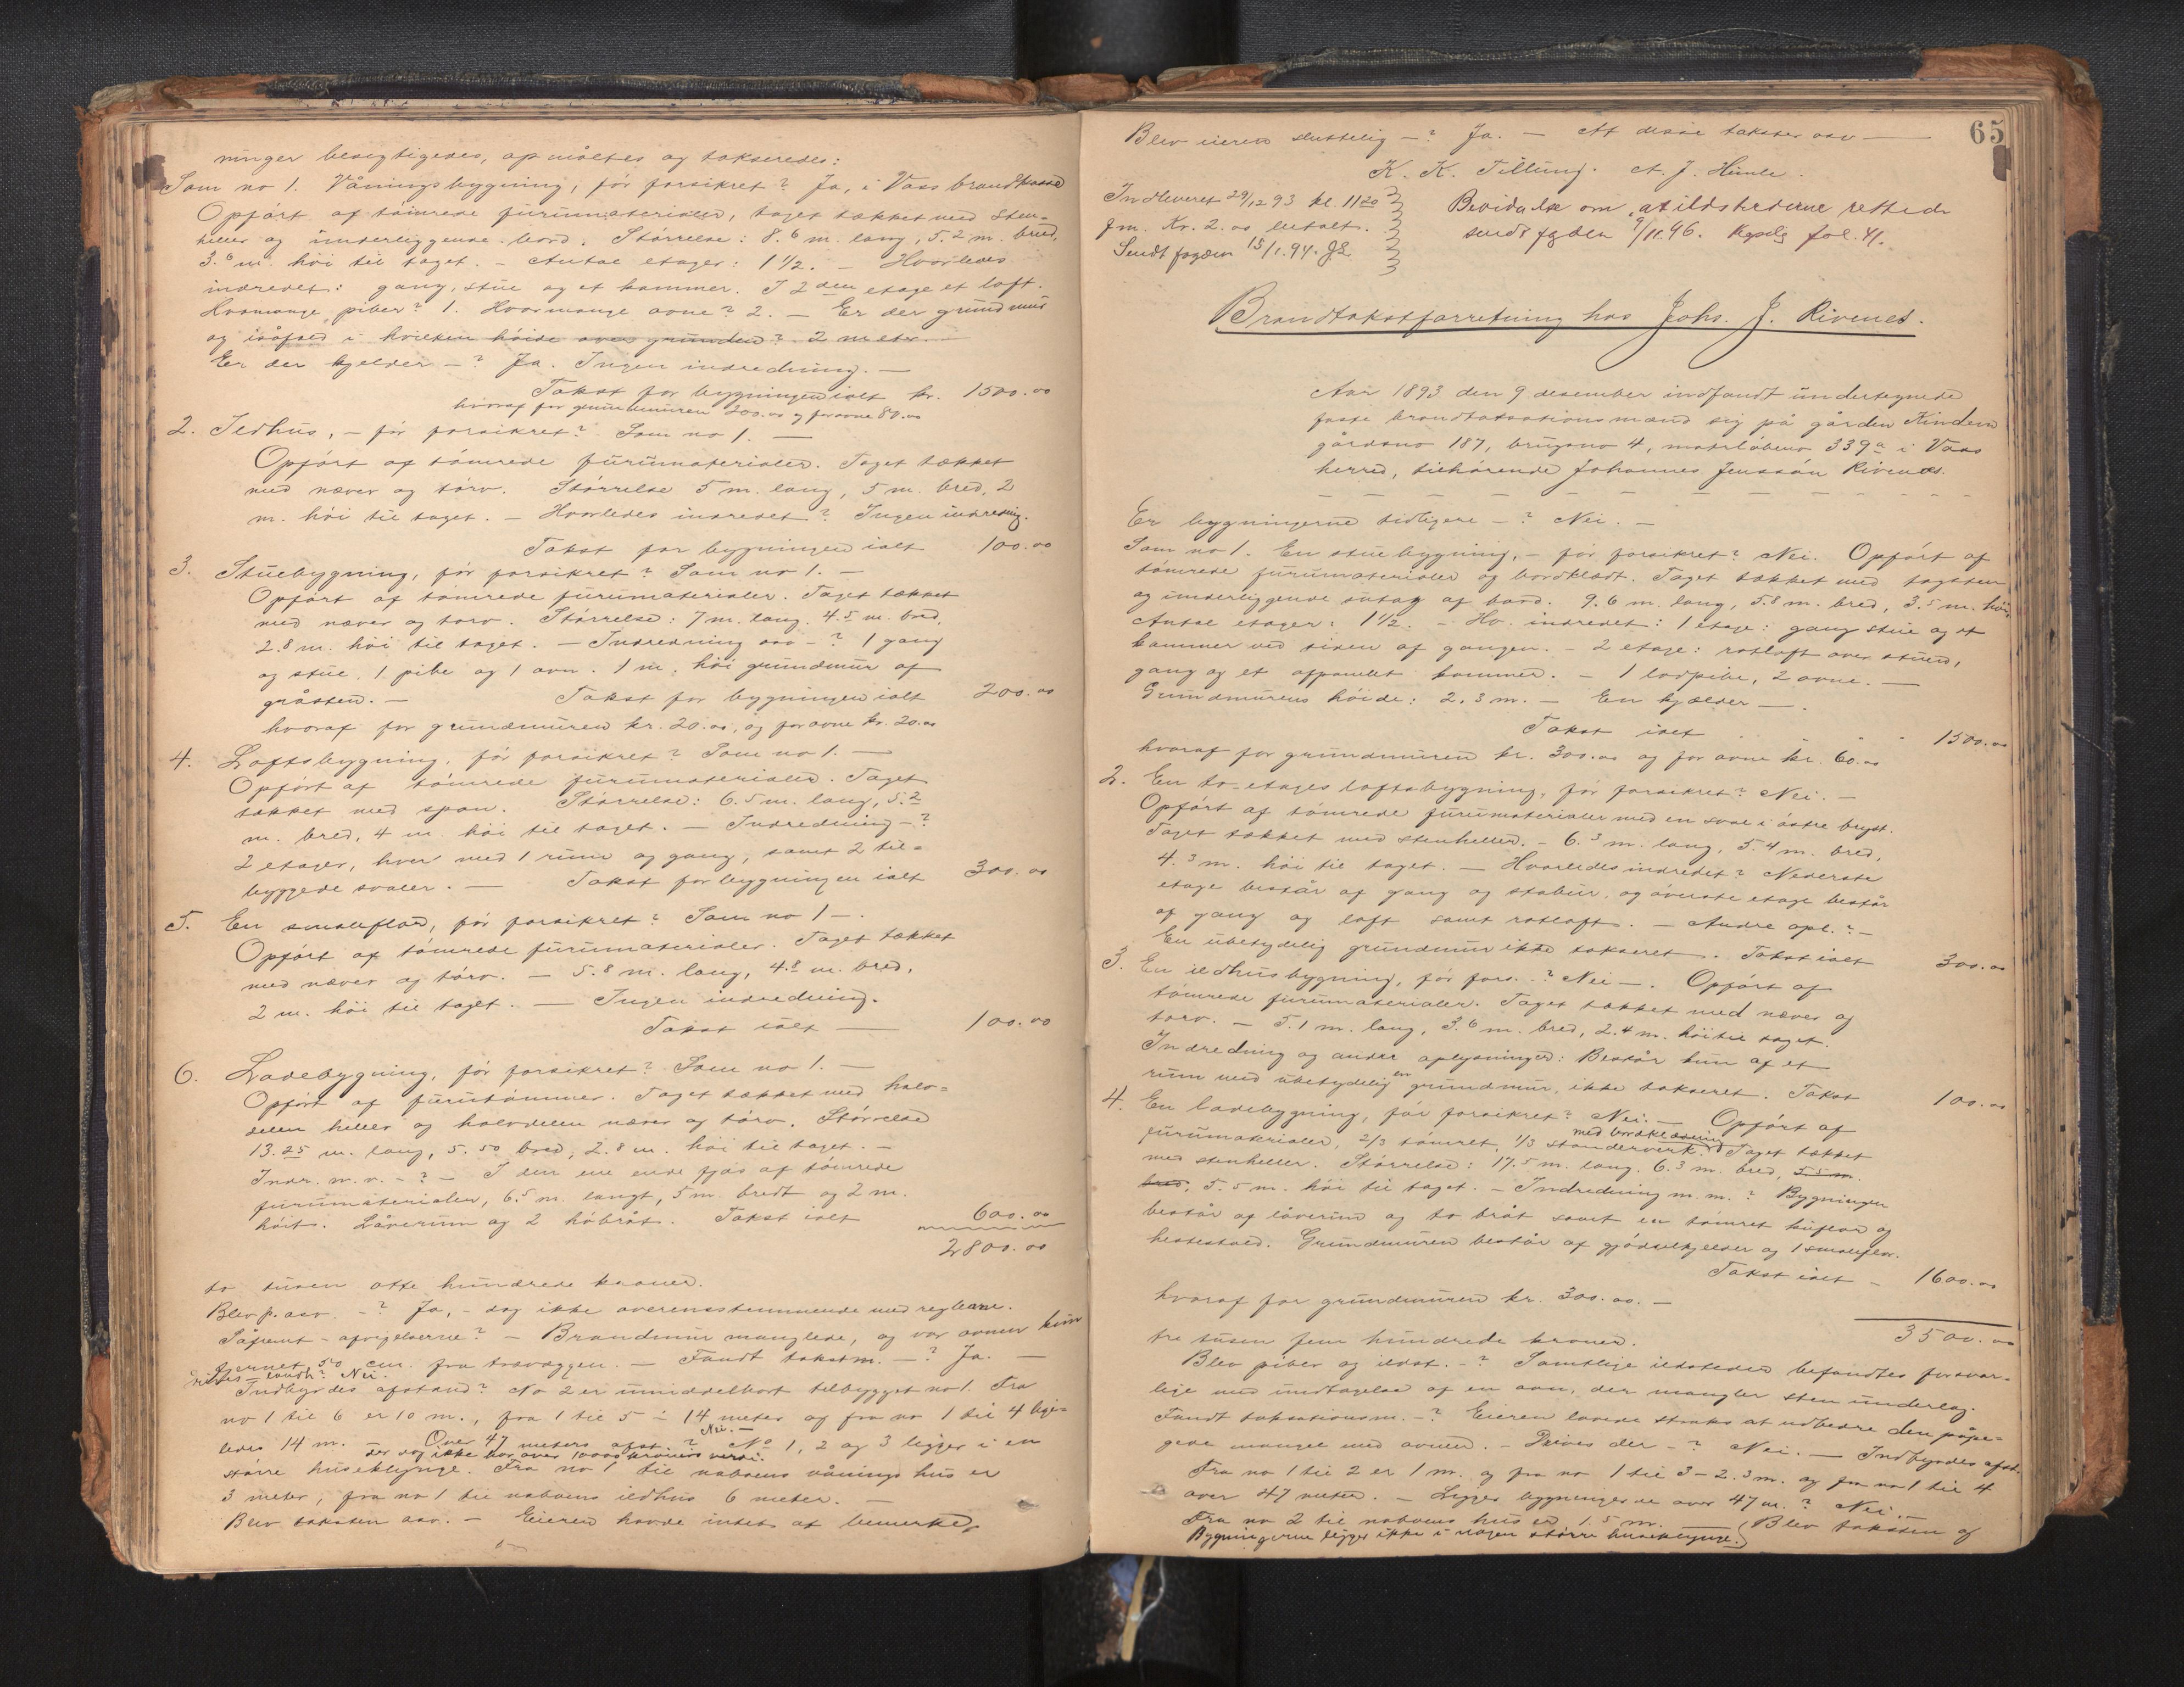 ninger besigtigedes, opmåltes og takseredes:
Som no 1. Våningsbygning, för forsikret? Ja, i Voss brandkasse
Opfört af tömrede furumaterialer, taget tækket med sten-
heller og underliggende bord. Störrelse: 8.6 m. lang, 5.2 m. bred,
3.6 m. höi til taget. – Antal etager: 1 1/2. – Hvorledes
indredet: gang, stue og et kammer. I 2den etage et loft.
Hvormange piber? 1. Hvormange ovne? 2. – Er der grundmur
og isåfald i hvilken höide over grunden? 2 meter. –
Er der kjelder –? Ja. Ingen indredning. –
Takst for bygningen ialt kr. 1500.00
hvoraf for grundmuren 200.00 og for ovne 80.00
2. Ildhus, – för forsikret? Som no 1. –
Opfört af tömrede furumaterialer. Taget tækket
med næver og törv. Störrelse 5 m. lang, 5 m. bred, 2
m. höi til taget. – Hvorledes indredet? Ingen indrednig.
Takst for bygningen ialt 100.00
3. Stuebygning, för forsikret? Som no 1. –
Opfört af tömrede furumaterialer. Taget tækket
med næver og törv. Störrelse: 7 m. lang. 4.5 m. bred,
2.8 m. höi til taget. – Indredning osv –? 1 gang
og stue, 1 pibe og 1 ovn. 1 m. höi grundmur af
gråsten. – Takst for bygningen ialt 200.00
hvoraf for grundmuren kr. 20.00, og for ovne kr. 20.00
4. Loftsbygning, för forsikret? Som no 1. –
Opfört af tömrede furumaterialer. Taget
tækket med spon. Störrelse: 6.5 m. lang, 5.2
m. bred, 4 m. höi til taget. – Indredning –?
2 etager, hver med 1 rum og gang, samt 2 til-
byggede svaler. – Takst for bygningen ialt 300.00
5. En smaleflor, för forsikret? Som no 1 –.
Opfört af tömrede furumaterialer. Taget tækket
med næver og törv. – 5.8 m. lang, 4.8 m. bred,
2 m. höi til taget. – Ingen indredning.
Takst ialt – 100.00
6. Ladebygning, för forsikret? Som no 1. –
Opfört af furutömmer. Taget tækket med halv-
delen heller og halvdelen næver og törv. Störrelse
13.25 m. lang, 5.50 bred, 2.8 m. höi til taget. –
Indr. m.v. –? – I den ene ende fjøs af tömrede
furumaterialer, 6.5 m. langt, 5 m. bredt og 2 m.
höit. Låverum og 2 höbråt. Takst ialt 600.00
2800.00
to tusen otte hundrede kroner.
Blev p. osv. –? Ja, – dog ikke overensstemmende med reglerne.
Såfremt – afvigelserne? – Brandmur manglede, og var ovnen kun
fjernet 50 cm. fra trævæggen. – Fandt takstm. –? Ja. –
Drives – sandh? Nei.
Indbyrdes afstand? No 2 er umiddelbart tilbygget no 1. Fra
no 1 til 6 er 10 m., fra 1 til 5 – 14 meter og fra no 1 til 4 lige-
ledes 14 m. – Over 47 meters afst.? Nei. – No 1, 2 og 3 ligger i en
der dog ikke har over 10000 kroners verdi.
större huseklynge. Fra no 1 til naboens våningshus er
3 meter, fra no 1 til naboens ildhus 6 meter. –
Blev taksten osv. – Eieren havde intet at bemerke.
65
Blev eieren sluttelig –? Ja. – At disse takster osv –
K. K. Tillung. A. J. Himle.
Indleveret 29/12 93 kl. 11 20
fm. Kr. 2.00 betalt.
Sendt fogden 15/1.94. J.L.
Bevidnelse om, at ildstederne rettede
sendt fogden 9/11.96. Kopibg fol. 41.
Brandtakstforretning hos Johs. J. Rivenes.
Aar 1893 den 9 desember indfandt undertegnede
faste brandtaksationsmænd sig på gården Kinden
gårdsno 187, brugsno 4, matrløbeno 339a i Voss
herred, tilhørende Johannes Jenssön Rivenes.
Er bygningerne tidligere –? Nei. –
Som no 1. En stuebygning, – för forsikret? Nei. Opfört af
tömrede furumaterialer og bordklædt. Taget tækket med tagsten
og underliggende sutag af bord. 9.6 m. lang, 5.8 m. bred, 3.5 m. höi,
Antal etager: 1 1/2. – Hv. indredet: 1 etage: gang stue og et
kammer ved siden af gangen. – 2 etage: rotloft over stuen,
gang og et afpanelet kammer. – 1 lodpibe, 2 ovne. –
Grundmurens höide: 2.3 m. – En kjælder –.
Takst ialt 1500.00
hvoraf for grundmuren kr. 300.00 og for ovne kr. 60.00
2. En to-etages loftsbygning, för forsikret? Nei. –
Opfört af tömrede furumaterialer med en sval i östre bryst.
Taget tækket med stenheller. – 6.3 m. lang, 5.4 m. bred,
4.3 m. höi til taget. – Hvorledes indredet? Nederste
etage består af gang og stabur, og överste etage består
af gang og loft samt rotloft. – Andre opl.? –
En ubetydelig grundmur ikke takseret. Takst ialt 300.00
3. En ildhusbygning, för fors..? Nei –. Opfört af
tömrede furumaterialer. Taget tækket med næver og
törv. – 5.1 m. lang, 3.6 m. bred, 2.4 m. höi til taget.
Indredning og andre oplysninger: Består kun af et
rum med en ubetydelig grundmur, ikke takseret. Takst 100.00
4. En ladebygning, för forsikret? Nei. – Opfört af
furumaterialer, 2/3 tömret, 1/3 stenderverk med bordklædning. Taget tækket
med stenheller. Störrelse: 17.5 m. lang. 6.3 m. bred, 5.5 m.
bred, 5.5 m. höi til taget. – Indredning m.m.? Bygningen
består af låverum og to bråt samt en tömret kuflor og
hestestald. Grundmuren består af gjödselkjelder og 1 smaleflor.
Takst ialt – 1600.00
hvoraf for grundmuren kr. 300.00. –
3500.00
tre tusen fem hundrede kroner.
Blev piber og ildst. –? Samtlige ildsteder befandtes forsvar-
lige med undtagelse af en ovn, der mangler sten underlag.
Fandt taksationsm. –? Eieren lovede straks at udbedre den påpe-
gede mangel med ovnen. – Drives der –? Nei. – Indbyrdes afst.
Fra no 1 til 2 er 1 m. og fra no 1 til 3 – 2.3 m. og fra no 1 til 4
over 47 meter. – Ligger bygningerne over 47 m.? Nei. –
Fra no 2 til naboens hus er 1.5 m. – Blev taksten af
Bygningerne ligger ikke i nogen större huseklynge.